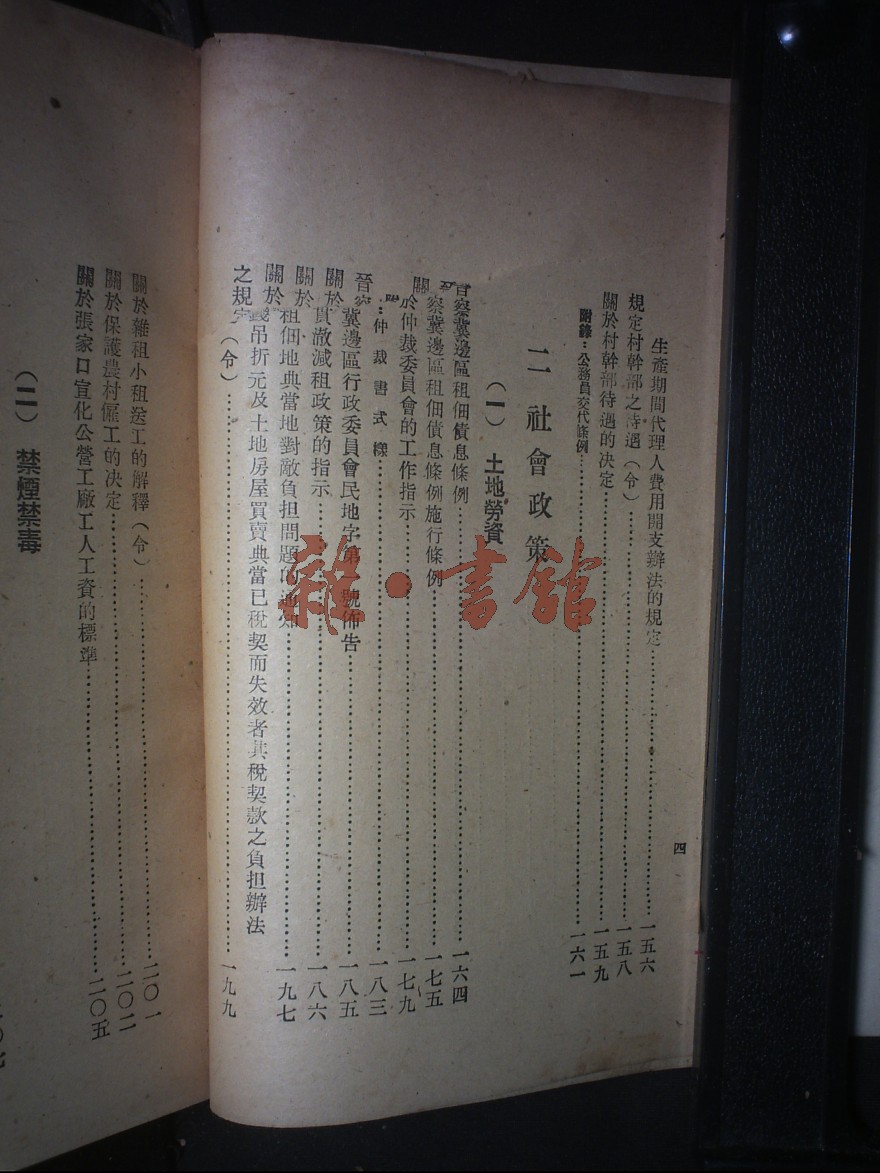 四
生產期間代理人費用開支辦法的規定……一五六
規定村幹部之待遇（令）……一五八
關於村幹部待遇的決定……一五九
附錄：公務員交代條例……一六一
二 社會政策
（一） 土地勞資
晉察冀邊區租佃債息條例……一六四
察冀邊區租佃債息條例施行條例……一七五
關於仲裁委員會的工作指示……一七九
附：仲裁書式樣……一八三
晉察冀邊區行政委員會民地字第 號佈告……一八五
關於貫澈減租政策的指示……一八六
關於租佃地典當地對敵負担問題的通知……一九七
關於錢吊折元及土地房屋買賣典當已稅契而失效者其稅契款之負担辦法
之規定（令）……一九九
關於雜租小租送工的解釋（令）……二〇一
關於保護農村僱工的決定……二〇二
關於張家口宣化公營工廠工人工資的標準……二〇五
（二） 禁煙禁毒
雜·書館